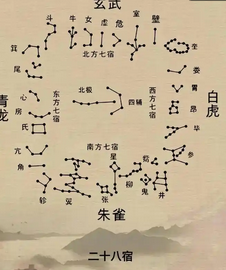 玄武
斗 牛 女 虚 危 室 壁
北方七宿
箕
尾
心
房
氐
亢
角
东方七宿
青龙
北极
四辅
西方七宿
奎
娄
胃
昴
毕
参
白虎
南方七宿
轸 翼 张 星 柳 鬼 井
朱雀
二十八宿